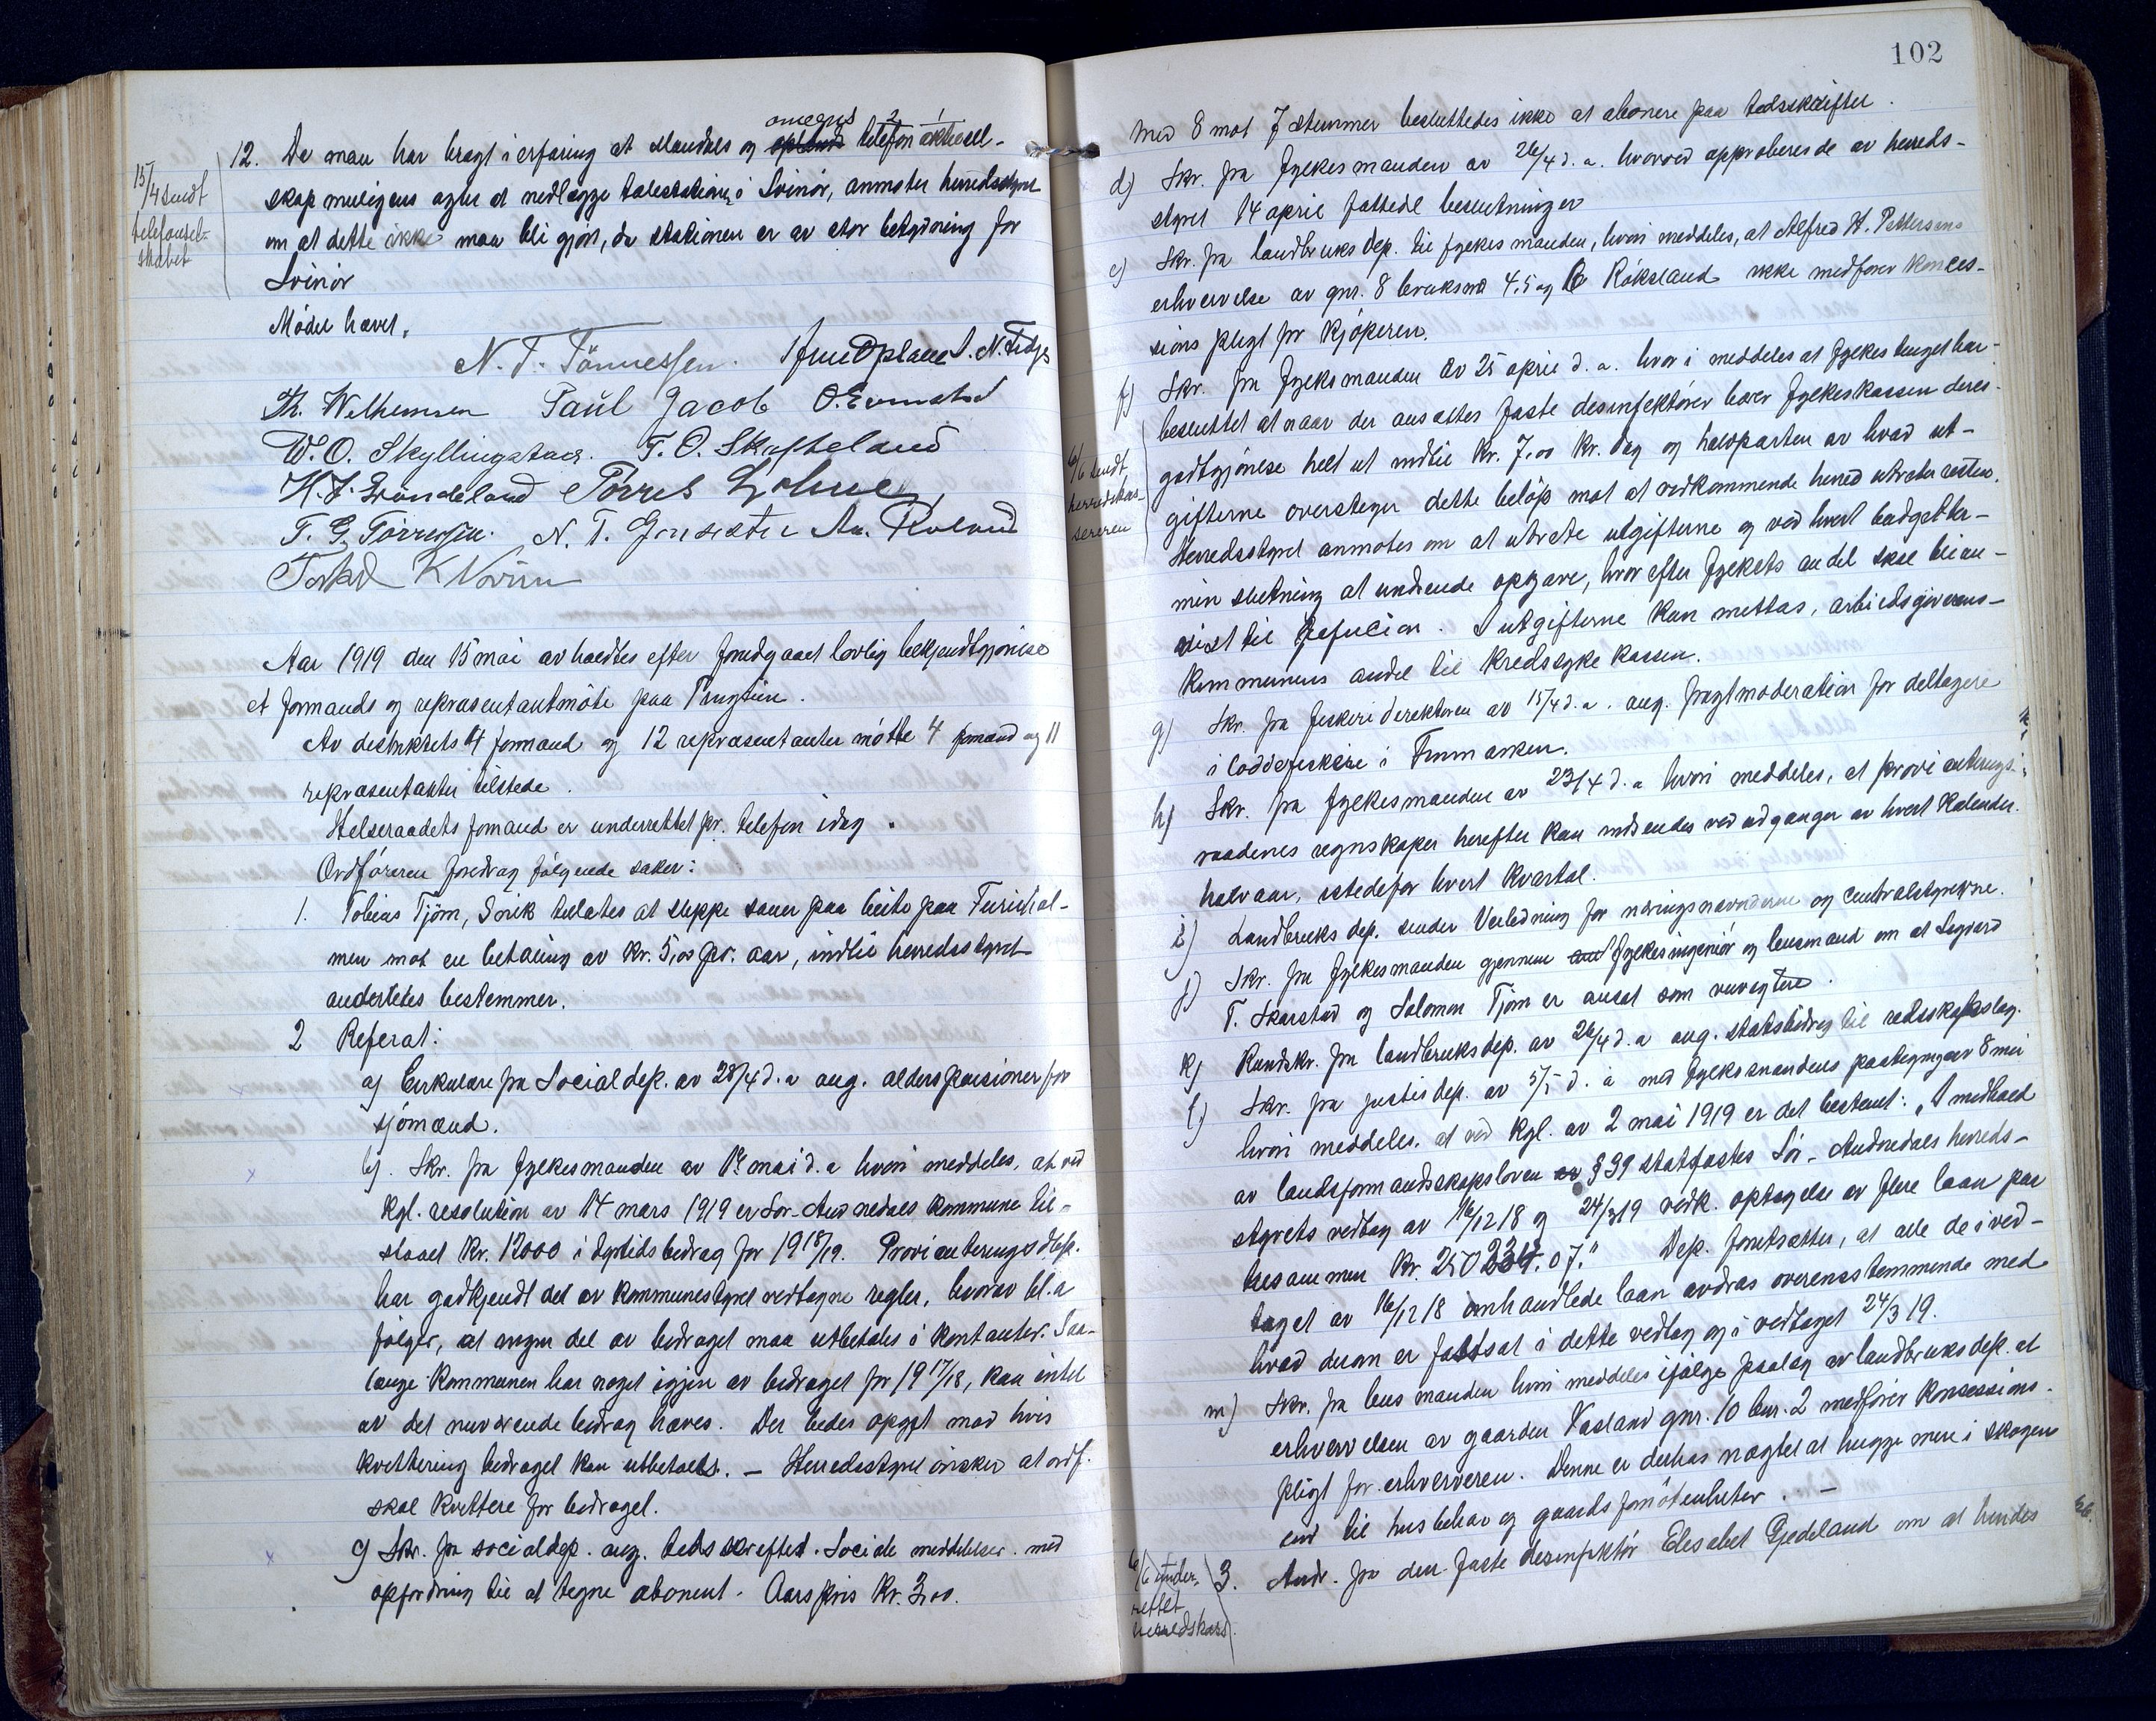 12. Da man har bragt i erfaring at Mandals og opland omegns telefon aktiesel-
skap muligens agter at nedlægge talestationen i Svinör, anmoter herredsstyret
om at dette ikke maa bli gjort, da stationen er av stor betydning for
Svinör
Mödet hævet.
15/4 sendt
telefonsel-
skabet
N. T. Tönnessen.
Th. Wilhemsen Paul Jacob O. Evensstad
W. O. Skyllingstad. T. O. Skofteland
K. J. Gröndeland Törres Lohne
T. G. Törressen. N. T. An. Roland
K Noriin
Aar 1919 den 15 mai avholdtes efter foredgaaet lovlig bekjendtgjörelse
et formands og repræsentantmöte paa Tingstuen.
Av destriktets 4 formænd og 12 repræsentanter mötte 4 formænd og 11
repræsentanter tilstede.
Helseraadets formand er underrettet pr. telefon idag.
Ordföreren foredrog fölgende saker:
1. Tobias Tjöm, Snik tillates at sleppe sauer paa beite paa Furuhol-
men mot en betaling av kr. 5,00 pr. aar, indtil herredsstyret
anderledes bestemmer.
2 Referat:
a) Cirkulære fra Socialdep. av 28/4 d. a ang. alderspensioner for
sjömænd.
b). Skr. fra fylkesmanden av 12 mai d. a hvori meddeles, at ved
kgl. resolution av 14 mars 1919 er Sör-Audnedals kommune til-
staaet kr. 12000 i dyrtidsbidrag for 1918/19. Provianteringsdep.
har godkjendt det av kommunestyret vedtagne regler, hvorav bl. a
fölger, at ingen del av bidraget maa utbetales i kontanter. Saa-
lange kommunen har noget igjen av bidraget for 1917/18, kan intet
av det nuværende bidrag hæves. Der bedes opgit mod hvis
kvittering bidraget kan utbetales. – Herredsstyret önsker at ordf.
skal kvittere for bidraget.
c) Skr. fra socialdep. ang. tidsskriftet. Sociale meddelelser. med
opfordring til at tegne abonent. Aarspris kr. 3,00.
102
med 8 mot 7 stemmer besluttedes ikke at abonere paa tidsskriftet.
d) Skr. fra fylkesmanden av 26/4 d. a. hvorved approberes de av herreds-
styret 14 april fattede beslutninger
e) Skr. fra landbruksdep. til fylkesmanden, hvori meddeles, at Alfred H. Pettersens
erhvervelse av gnr. 8 bruksnr 4, 5 og 6 Röksland ikke medförer konces-
sions pligt for kjöperen.
f) Skr. fra fylkesmanden av 25 april d. a. hvori meddeles at fylkestinget har
besluttet at naar der ansættes faste desinfektörer bærer fylkeskassen deres
godtgjörelse helt ut indtil kr. 7,00 pr. dag og halvparten av hvad ut-
gifterne overstiger dette belöp mot at vedkommende herred utreder resten.
Herredsstyret anmotes om at utrede utgifterne og ved hvert budgetter-
min slutning at indsende opgave, hvorefter fylkets andel skal bli an-
vist til refusion. I utgifterne kan medtas, arbeidsgiverens-
kommunens andel til kredssykekassen.
6/6 sendt
herredskas-
sereren
g) Skr. fra fiskeridirektören av 15/4 d. a. ang. fragtmoderation for deltagere
i loddefisket i Finmarken.
h) Skr. fra fylkesmanden av 23/4 d. a hvori meddeles, at provianterings-
raadenes regnskaper herefter kan indsendes ved udgangen av hvert kalender
halvaar, istedefor hvert kvartal.
i) Landbruksdep. sender Veiledning for næringsnævnderne og centralstyrerne.
j) Skr. fra fylkesmanden gjennem amt fylkesingeniör og lensmand om at Sigvard
T. Skarstad og Salomon Tjöm er ansat som veivogtere.
k) Rundskr. fra landbruksdep. av 26/4 d. a ang. statsbidrag til redskapslag.
l) Skr. fra justisdep. av 5/5 d. a med fylkesmandens paategning av 8 mai
hvori meddeles. at ved kgl. av 2 mai 1919 er det bestemt: „I medhold
av landsformandsskapsloven av § 39 statfæstes Sör-Audnedals herreds-
styrets vedtag av 16/12 18 og 24/3 19 vedk. optagelse av flere laan paa
tilsammen kr. 250 234.07." Dep. forutsætter, at alle de i ved-
taget av 16/12 18 omhandlede laan avdras overensstemmende med
hvad derom er fastsat i dette vedtag og i vedtaget 24/3 19.
m) Skr. fra lensmanden hvori meddeles ifölge paalæg av landbruksdep. at
erhvervelsen av gaarden Vasland gnr. 10 bnr. 2 medförer konsessions-
pligt for erhververen. Denne er derhos nægtet at hugge mere i skogen
end til husbehov og gaardsfornödenheter. –
6/6 under-
rettet
herredskass.
3. Andr. fra den faste desinfektör Elisabet Gjedeland om at hendes